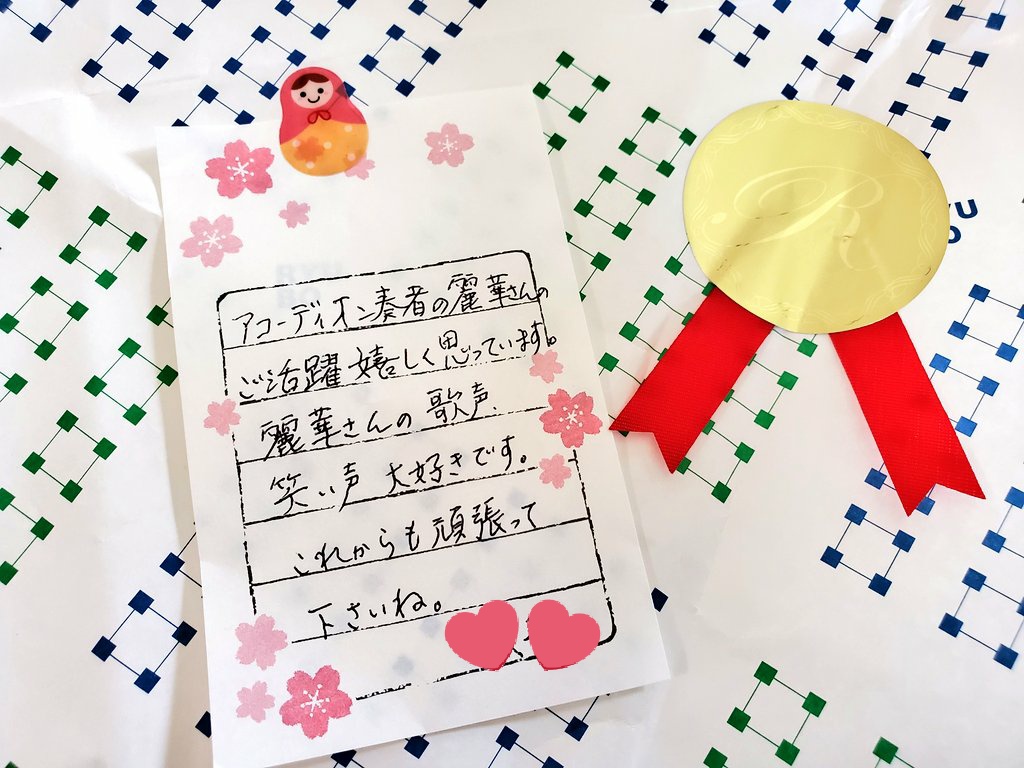 アコーディオン奏者の麗華さんの
ご活躍 嬉しく思っています。
麗華さんの 歌声、
笑い声 大好きです。
これからも 頑張って
下さいね。
R